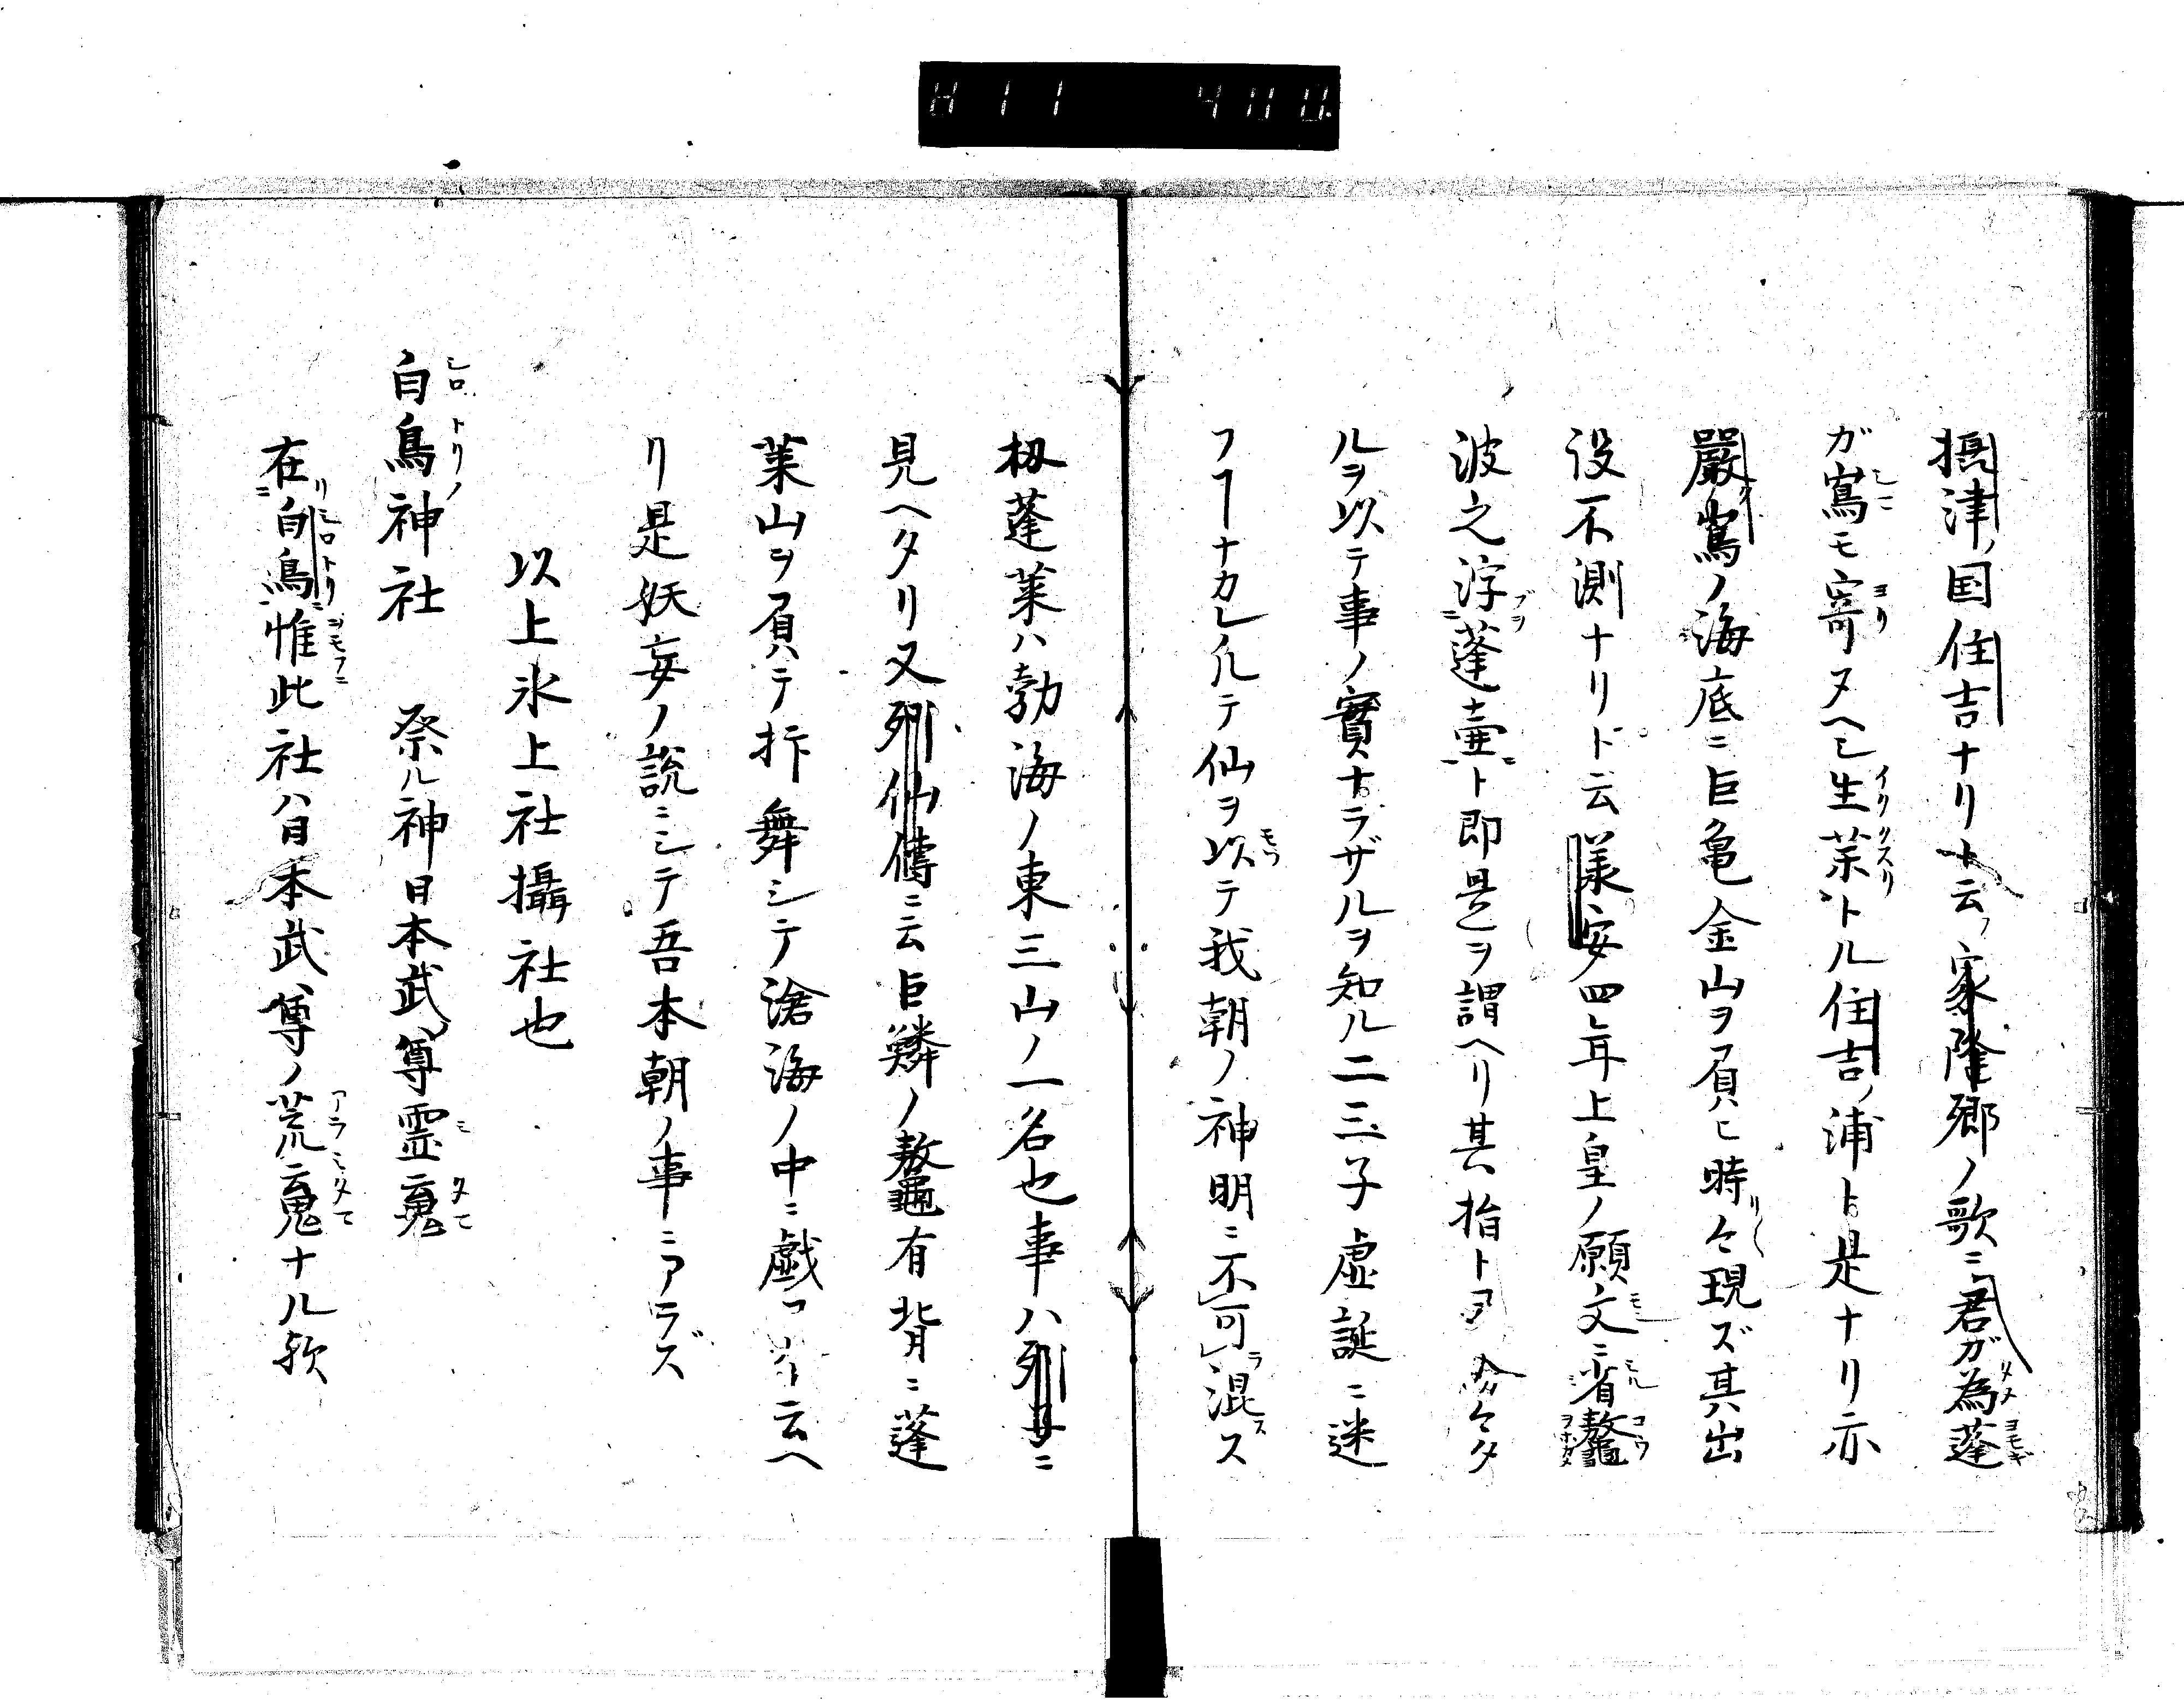 H11 400.
摂津ノ国住吉ナリト云フ家隆郷ノ歌ニ君ガ為蓬
ガ嶌モ寄ヌヘシ生薬トル住吉ノ浦ト是ナリ亦
嚴嶌ノ海底ニ巨亀金山ヲ負ヒ時々現ズ其出
没不測ナリト云 安四年上皇ノ願文ニ省鼇
波之浮蓬壷ト即是ヲ謂ヘリ其指トヲ 々タ
ルヲ以テ事ノ實ナラザルヲ知ル二三子虚誕ニ迷
フヿナカレ テ仙ヲ以テ我朝ノ神明ニ不可混ス
扨蓬莱ハ勃海ノ東三山ノ一名也事ハ列 ニ
見ヘタリ又列仙傳ニ云巨鱗ノ鼇有背ニ蓬
莱山ヲ負ハテ抃舞シテ滄海ノ中ニ戯フ 云ヘ
リ是妖妄ノ説ニシテ吾本朝ノ事ニアラズ
以上氷上社攝社也
白鳥神社 祭ル神日本武尊霊䰟
在白鳥惟此社ハ日本武尊ノ荒䰟ナル欤